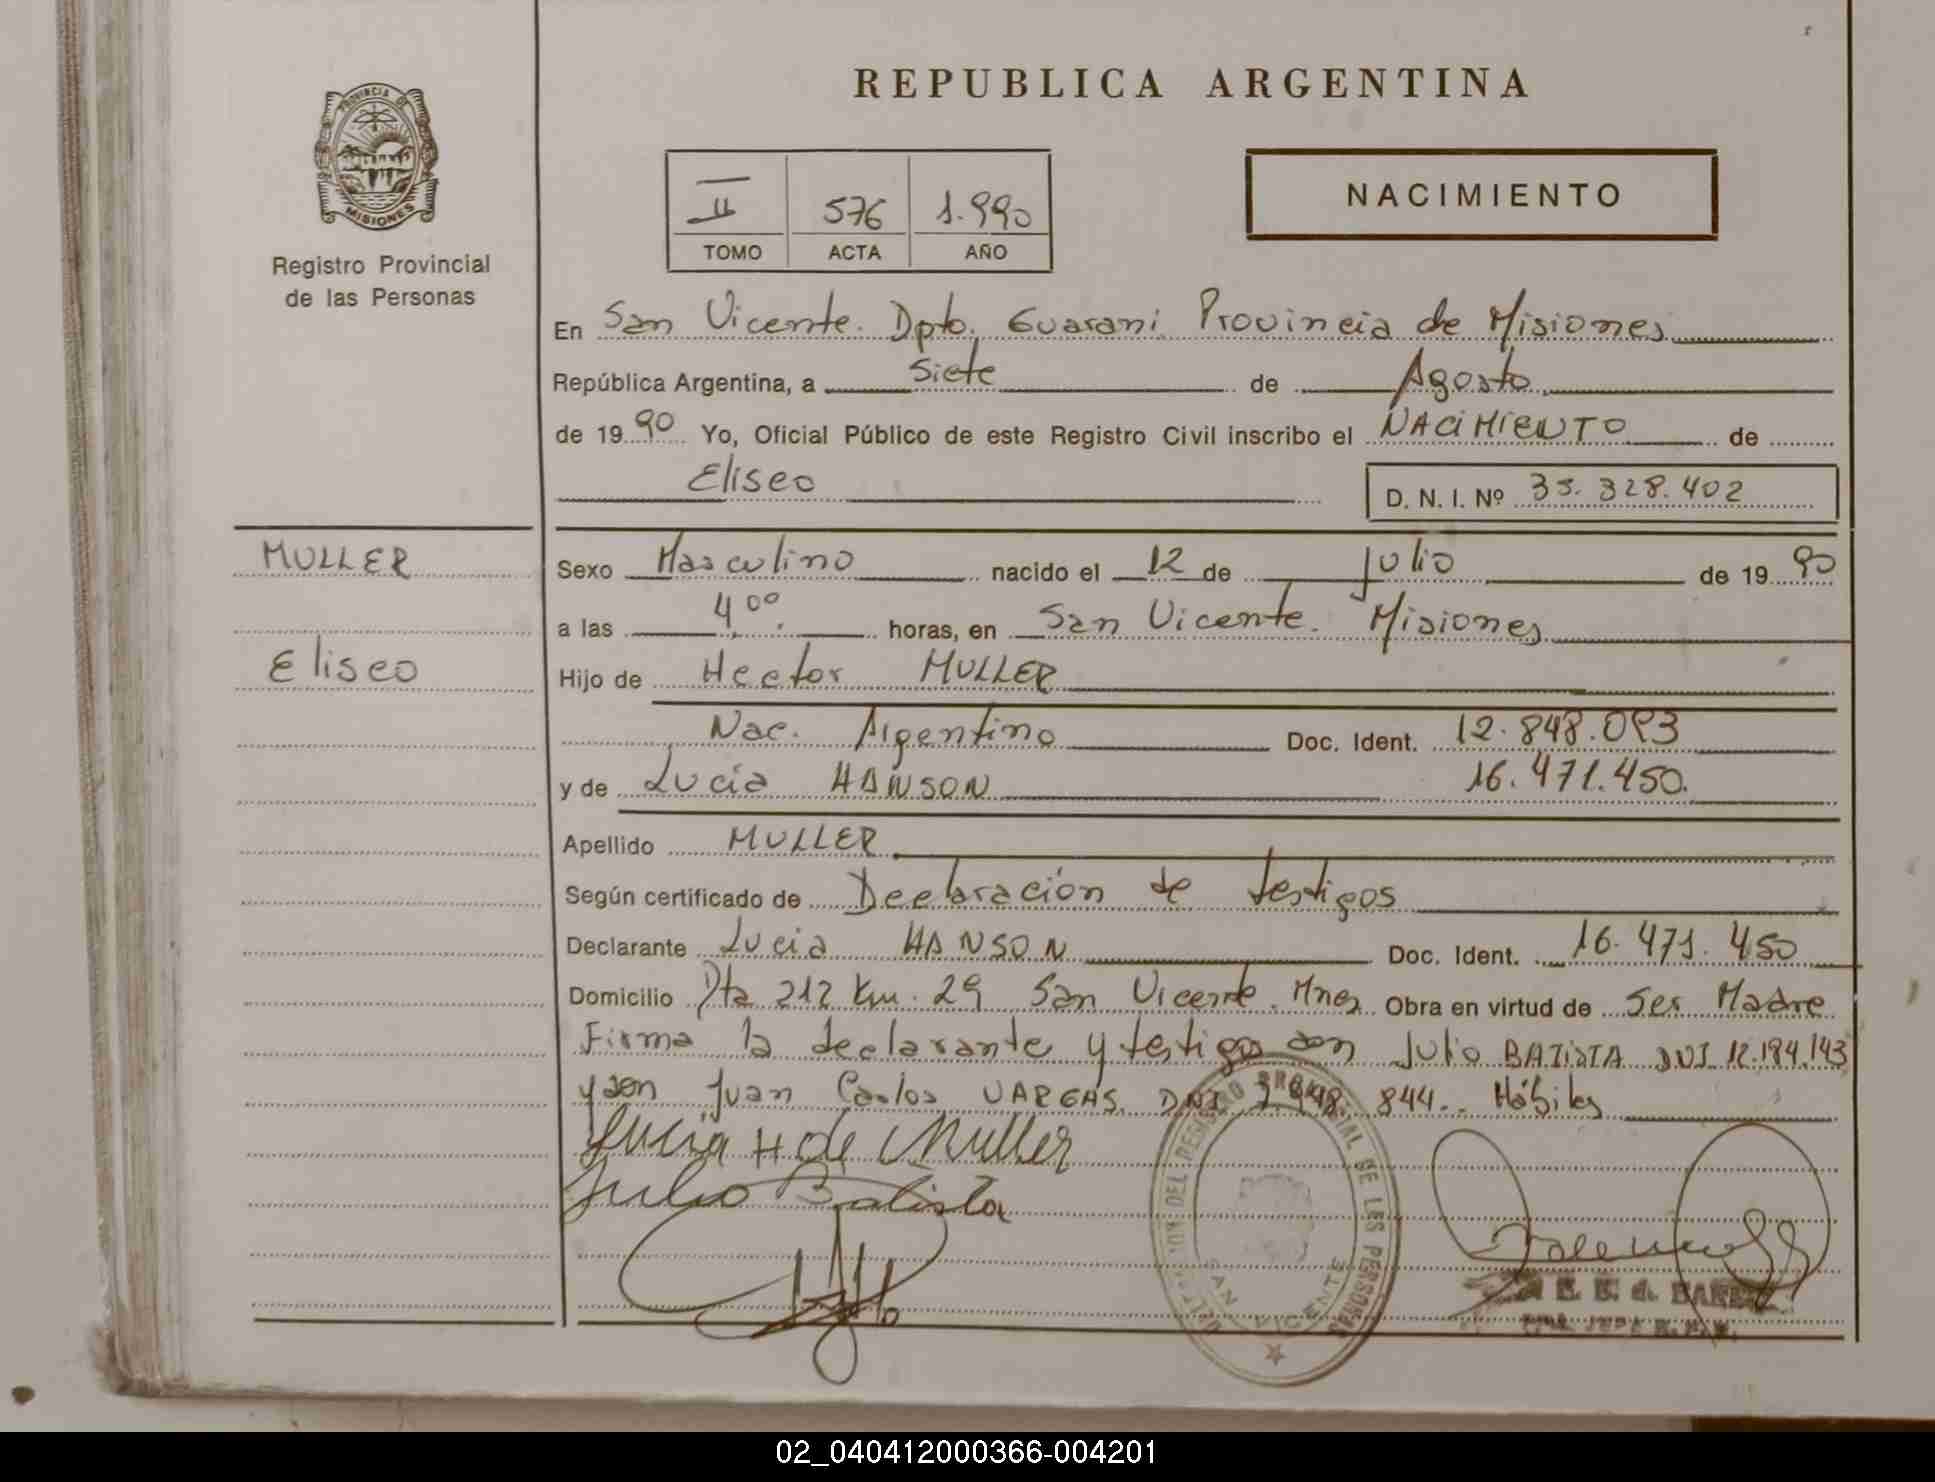 REPUBLICA ARGENTINA
PROVINCIA DE
MISIONES
Registro Provincial
de las Personas
II 576 1.990
TOMO ACTA AÑO
NACIMIENTO
En San Vicente. Dpto. Guarani Provincia de Misiones
República Argentina, a Siete de Agosto
de 1990 Yo, Oficial Público de este Registro Civil inscribo el NACIMIENTO de
Eliseo D. N. I. Nº 35.328.402
MULLER
Eliseo
Sexo Masculino nacido el 12 de Julio de 1990
a las 4 00 horas, en San Vicente. Misiones
Hijo de Hector MULLER
Nac. Argentino Doc. Ident. 12.848.093
y de Lucia HANSON 16.471.450.
Apellido MULLER
Según certificado de Declaración de testigos
Declarante Lucia HANSON Doc. Ident. 16.471.450
Domicilio Rta 212 Km. 29 San Vicente. Mnes Obra en virtud de Ser Madre
Firma la declarante y testigos son Julio BATISTA DNI 12.194.143
y son Juan Carlos VARGAS. DNI 844.. Hábiles
Lucia H de Muller
Julio Batista
DEL REGISTRO PROVINCIAL DE LES PERSONAS
SAN VICENTE
02_040412000366-004201